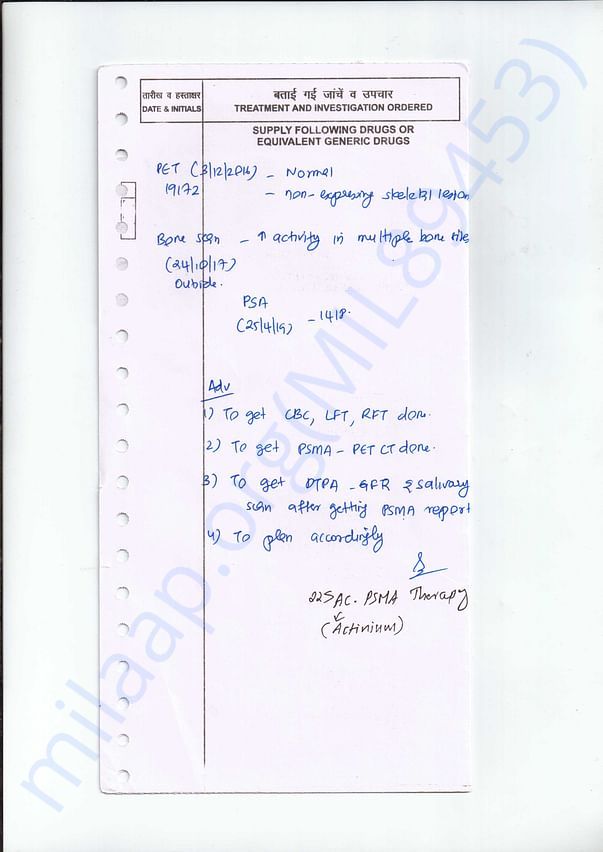 तारीख व हस्ताक्षर
DATE & INITIALS
बताई गई जांचें व उपचार
TREATMENT AND INVESTIGATION ORDERED
SUPPLY FOLLOWING DRUGS OR
EQUIVALENT GENERIC DRUGS
PET (3/12/2016) - Normal
19172 - non-expressing skeletal lesion
Bone scan - ↑ activity in multiple bone
(24/10/17)
Outside.
PSA
(25/4/19) - 1418.
Adv
1) To get CBC, LFT, RFT done.
2) To get PSMA - PET CT done.
3) To get DTPA - GFR & salivary
scan after getting PSMA report
4) To plan accordingly
225 AC. PSMA Therapy
(Actinium)
milaap.org(MIL89453)